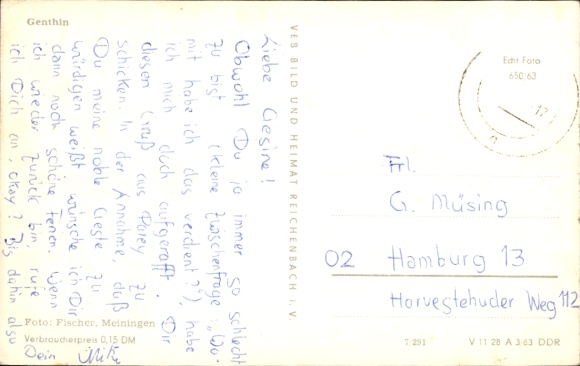 Genthin
Liebe Gesine!
Obwohl Du ja immer so schlecht
zu bist (kleine Zwischenfrage: „Wo-
mit habe ich das verdient?), habe
ich mich doch aufgerafft. Dir
diesen Gruß aus Parey zu
schicken. In der Annahme, daß
Du meine noble Geste zu
würdigen weißt wünsche ich Dir
dann noch schöne Ferien. Wenn
ich wieder zurück bin, rufe
ich Dich an, okay? Bis dahin also
Dein
VEB BILD UND HEIMAT REICHENBACH I. V.
Foto: Fischer, Meiningen
Verbraucherpreis 0,15 DM
Echt Foto
650/63
12
Frl.
G. Müsing
02 Hamburg 13
Harvestehuder Weg 112
V 11 28 A 3/63 DDR